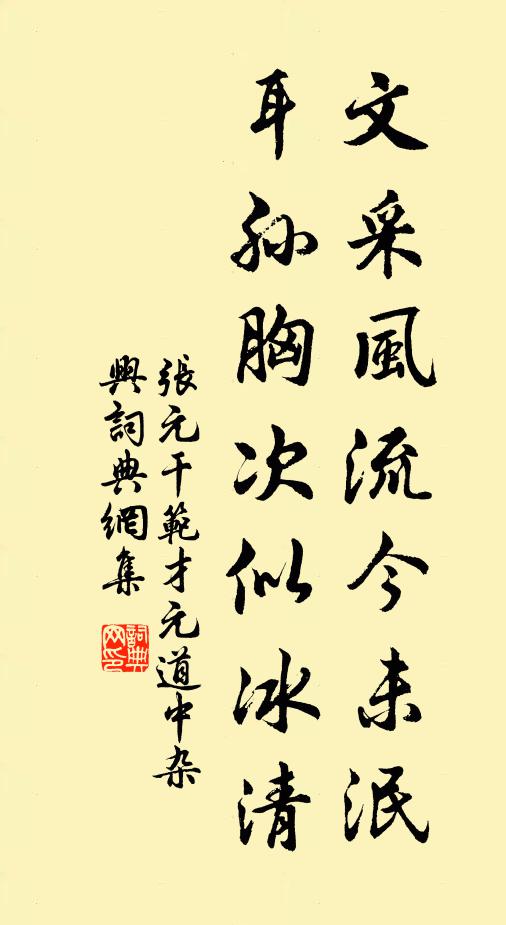 文采風流今未泯
耳孫胸次似冰清
張元干範才元道中杂
興詞典網集
詞典网印